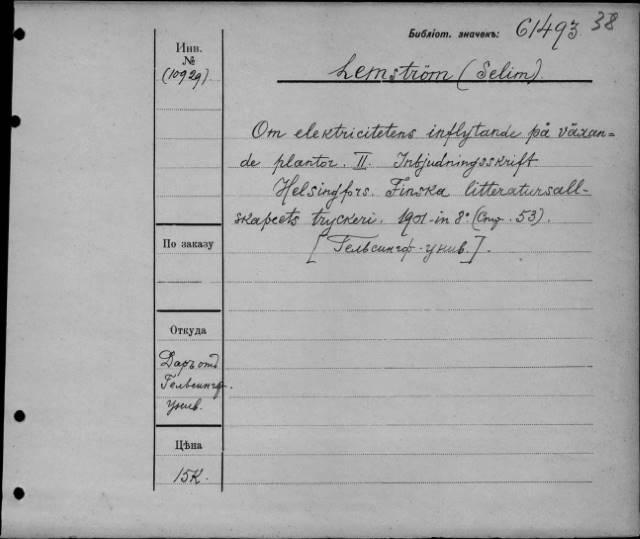 Библіот. значекъ: 61493 38
Инв.
№
(10929)
Lemström (Selim).
Om elektricitetens inflytande på växan=
de plantor. II. Inbjudningsskrift
Helsingfors. Finska litteratursäll-
skapets tryckeri. 1901 in 8° (Стр. 53).
[Гельсингф. унив.].
По заказу
Откуда
Даръ отъ
Гельсингф.
унив.
Цѣна
15К.